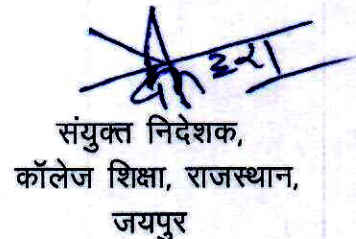 संयुक्त निदेशक,
कॉलेज शिक्षा, राजस्थान,
जयपुर